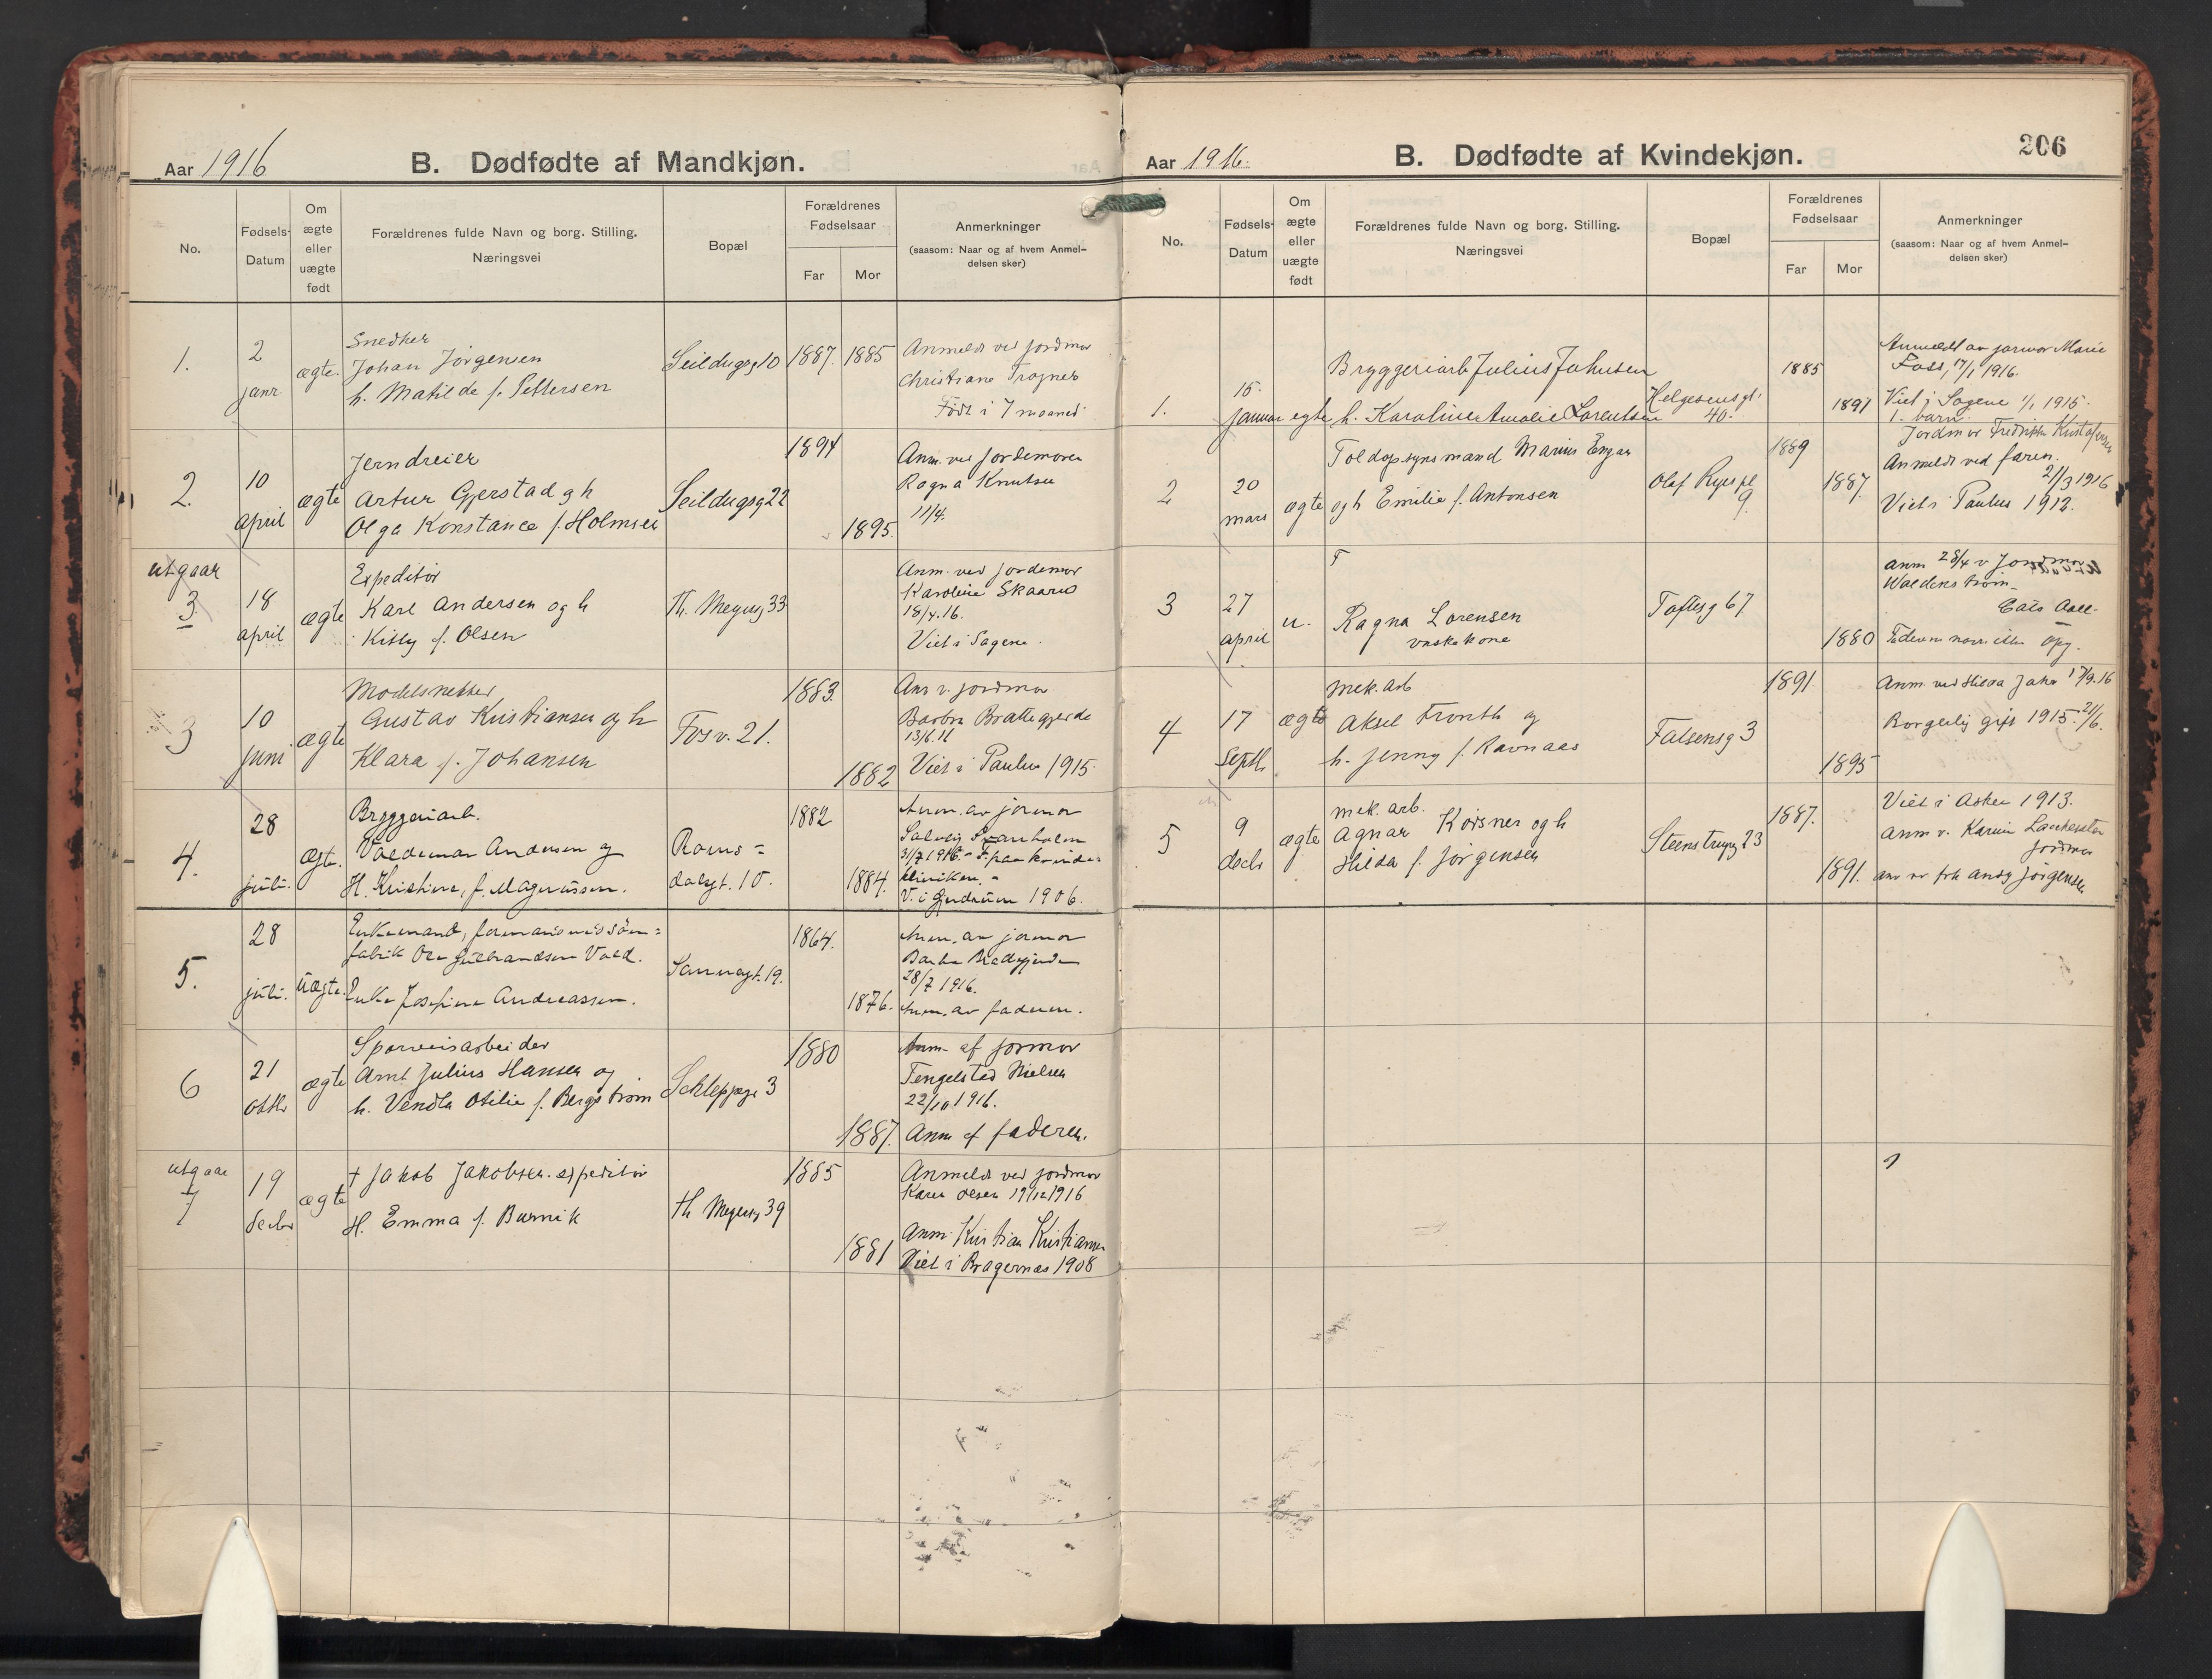 Aar 1916
B. Dødfødte af Mandkjøn.
No.
Fødsels-
Datum
Om
ægte
eller
uægte
født
Forældrenes fulde Navn og borg. Stilling.
Næringsvei
Bopæl
Forældrenes
Fødselsaar
Far
Mor
Anmerkninger
(saasom: Naar og af hvem Anmel-
delsen sker)
1.
2
janr
ægte.
Snedker
Johan Jörgensen
h. Matilde f. Pettersen
Seildugsg 10
1887.
1885
Anmeldt ved jordmor
Christiane Trogner
Födt i 7 maaned
2.
10
april
ægte
Jerndreier
Artur Gjerstad og h
Olga Konstance f. Holmsen
Seildugsg 22
1894
1895.
Anm. ved jordemoren
Ragna Knutsen
11/4.
utgaar
3
18
april
ægte
Expeditör
Karl Andersen og h
Kitty f. Olsen
Th. Meyersg 33
Anm. ved jordemor
Karoline Skaarud
18/4.16.
Viet i Sagene.
3
10
juni
ægte
Modelsnekker
Gustav Kristiansen og h
Klara f. Johansen
Fosv. 21.
1883.
1882
Anm v. jordmor
Barbra Brattegjerde
13/6.16
Viet i Paulus 1915.
4.
28
juli.
ægte.
Bryggeriarb.
Valdemar Andersen og
H. Kristine, f. Magnussen.
Roms=
dalsgt. 10.
1882
1884.
Anm. av jormor
Solveig Svanholm
31/7 1916. - F. paa kvinde-
kliniken.-
V. i Gjerdrum 1906.
5.
28
juli.
Uægte.
Enkemand, formand ved söm=
fabrik Ole Gulbrandsen Vold.
Enke Josefine Andreassen.
Sannergt. 19.
1864.
1876.
Anm. av jormor
Barbra Brattegjerde
28/7 1916.
Anm. av faderen.
6
21
oktbr
ægte
Sporveisarbeider
Arnt Julius Hansen og
h. Vendla Otilie f. Bergström
Schleppegr 3
1880
1887.
Anm. af jormor
Tengelsted Nielsen
22/10 1916.
Anm af faderen.
utgaar
7
19
decbr
ægte
+ Jakob Jakobsen. expeditör
H. Emma f. Burnik
Th Meyersg 39
1885
1881
Anmeldt ved jordmor
Karen Olsen 19/12 1916
Anm. Kristian Kristiansen
Viet i Bragernæs 1908
Aar 1916.
B. Dødfødte af Kvindekjøn.
206
No.
Fødsels-
Datum
Om
ægte
eller
uægte
født
Forældrenes fulde Navn og borg. Stilling.
Næringsvei
Bopæl
Forældrenes
Fødselsaar
Far
Mor
Anmerkninger
(saasom: Naar og af hvem Anmel-
delsen sker)
1.
15.
januar
egte
Bryggeriarb Julius Johnsen
h. Karoline Amalie Lorentsen
Helgesensgt.
40.
1885
1891
Anmeldt av jormor Marie
Foss, 17/1 1916.
Viet i Sagene 1/1 1915.
1. barn.
2
20
mars
ægte
Toldopsynsmand Marius Engen
og h Emilie f. Antonsen
Olaf Ryes pl
9.
1889
1887.
Jordmor Fredrikke Kristofersen
Anmeldt ved faren.
21/3 1916
Viet i Paulus 1912.
3
27
april
u.
Ragna Lorensen
vaskekone
Toftesg 67
1880
anm 28/4 v Jordmor
Waldenström
Faderens navn ikke opg.
4
17
Septbr
ægte
mek. arb
Aksel Fronth og
h. Jenny f. Ravnaas
Falsensg 3
1891
1895
Anm. ved Hilda Jahr 17/9.16
Borgerlig gift 1915. 21/6.
5
9
decbr
ægte
mek. arb.
Agnar Korsner og h
Hilda f. Jörgensen
Steenstrupsg 23
1887.
1891.
Viet i Asker 1913.
Anm v. Karin
jordmor
anm av frk Andy Jörgensen